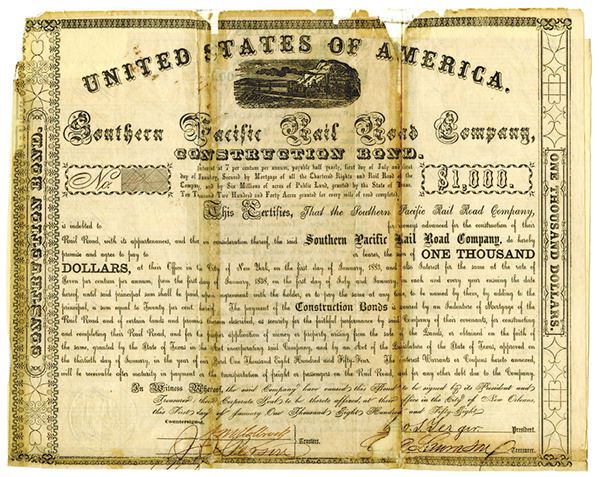 UNITED STATES OF AMERICA.
Southern Pacific Rail Road Company,
CONSTRUCTION BOND.
Interest at 7 per centum per annum, payable half yearly, first day of July and first
day of January, Secured by Mortgage of all the Chartered Rights and Rail Road of the
Company, and by Six Millions of acres of Public Land, granted by the State of Texas.
Ten Thousand Two Hundred and Forty Acres granted for every mile of road completed.
No.
$1,000.
This Certifies, That the Southern Pacific Rail Road Company,
is indebted to for moneys advanced for the construction of their
Rail Road, with its appurtenances, and that in consideration thereof, the said Southern Pacific Rail Road Company, do hereby
promise and agree to pay to or bearer, the sum of ONE THOUSAND
DOLLARS, at their Office in the City of New York, on the first day of January, 1883, and also Interest for the same at the rate of
Seven per centum per annum, from the first day of January, 1858, on the first day of July and January in each and every year ensuing the date
hereof, until said principal sum shall be paid, upon agreement with the holder, or to pay the same at any time, to be named by them, by adding to the
principal, a sum equal to Twenty per cent. hereof. The payment of the Construction Bonds is secured by an Indenture of Mortgage of the
Rail Road and of certain lands and premises therein described, as security for the faithful performance by said Company of their covenants, for constructing
and completing their Rail Road, for the proper appointment of moneys, arising from the sale of the Lands, obtained on the faith of
the same, granted by the State of Texas in the Transportation said Company, and by an Act of the Legislature of the State of Texas, approved on
the thirtieth day of January, in the year of our Lord One Thousand Eight Hundred and Fifty-Four. The Interest Warrants or Coupons hereto annexed,
will be receivable after maturity in payment to the transportation of freight or passengers on the Rail Road, or for any other debt due to the Company.
In Witness Whereof, the said Company have caused this Bond to be signed by its President and
Treasurer their Corporate Seal to be thereto affixed, at their office in the City of New Orleans,
this First day of January One Thousand Eight Hundred and Fifty-Eight.
Countersigned,
Trustees.
President.
Treasurer.
CONSTRUCTION BOND.
ONE THOUSAND DOLLARS.